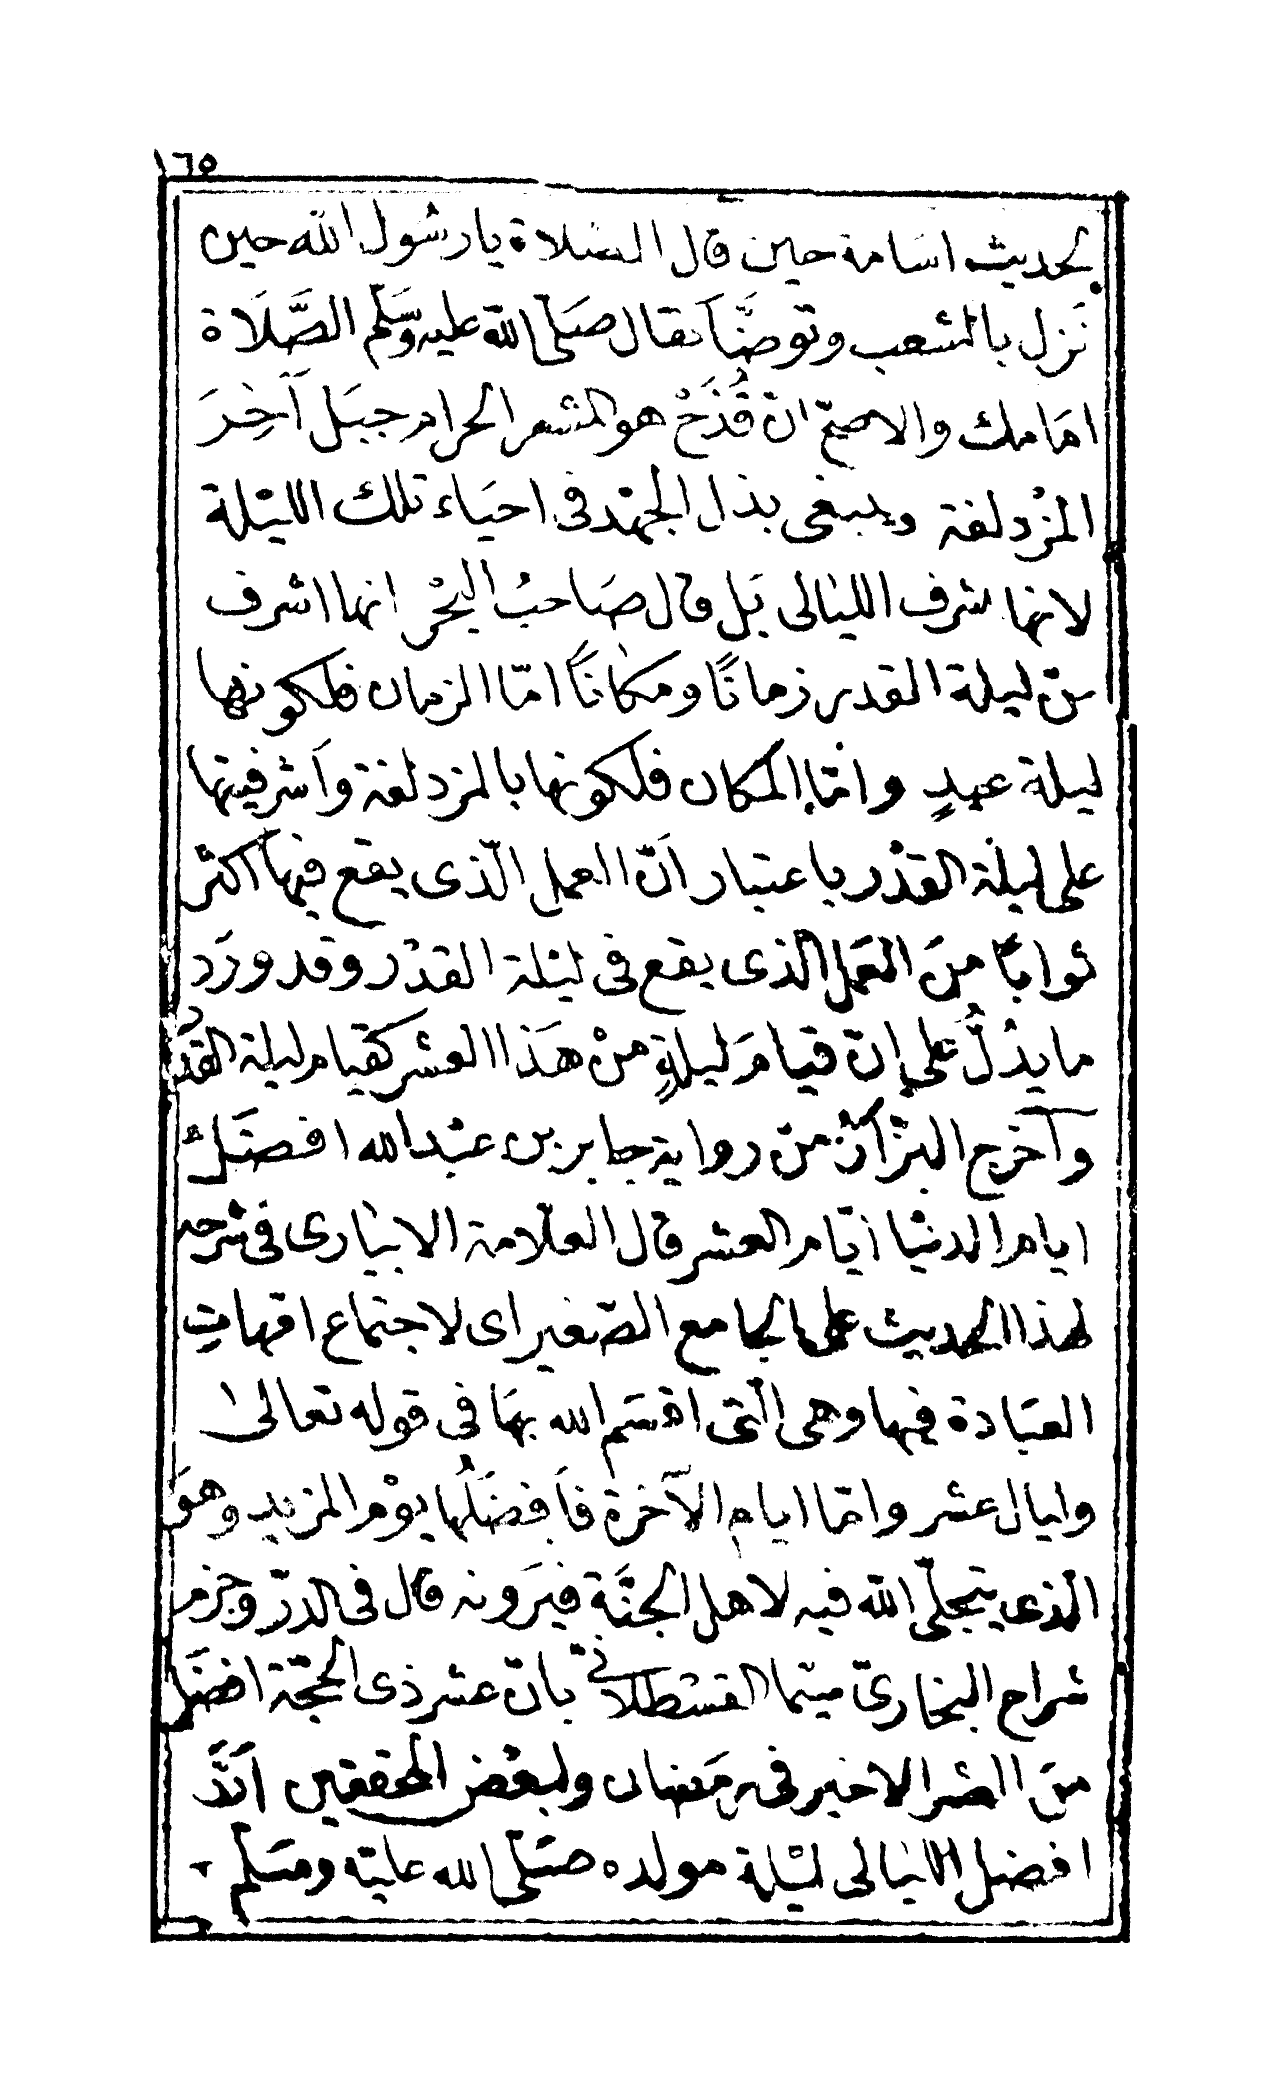 ١٦٥
لحديث اسَامة حين قال الصلاة يا رسُول الله حين
نَزل بالشعب وتوضَّأ فقال صَلى الله عليه وَسَلم الصَّلَاة
امَامك والاصحّ انّ قُذَحْ هو المشعر الحرام جبَل آخِرَ
المزْدلفة وينبغى بذل الجهْد فى احيَاء تلك الليْلة
لانها شرف الليَالى بَل قال صَاحبُ البحْر انها اشرف
منّ ليلة القدر زمانًا ومكانًا امّا الزمان فلكونها
ليلة عيدٍ وامّا المكان فلكونها بالمزدلفة وأشرفيتها
على ليلة القدْر باعتبار أنّ العمل الّذى يقع فيها أكثر
ثوابًا منَ العَمل الذى يقع فى ليْلة القدْر وقد ورَد
ما يدُلُّ على إنّ قيامَ ليلةٍ منْ هَذا العشر كقيام ليلة القدْر
وأخرج البزّارْ منّ رواية جابر بن عبْد الله افضَلُ
ايام الدنْيا أيّام العشر قال العلّامة الابيَارى فى شرحه
لهذا الحديث على الجامع الصّغير اى لاجتماع امّهاتِ
العبَادة فيها وهى الّتى اقسَم الله بهَا فى قوله تعالىٰ
وليال عشر وامّا ايام الآخرة فأفضَلُها يوْم المزيد وهوَ
الّذى يتجلّى الله فيه لاهل الجنَّة فيَرونه قال فى الدرّ وجزم
شراح البخارىّ سيّما القسْطلانىّ بانّ عشر ذى الحجّة افضَل
منَ العشر الاخير فى رمَضان ولبعْض المحققين أنّدَ
افضل الليَالى ليْلة مولده صَلّى الله عليْه وسَلم